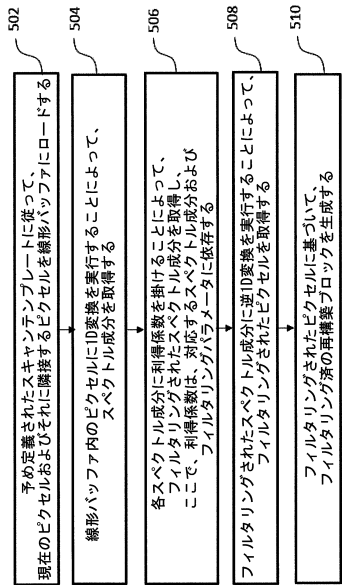 502
予め定義されたスキャンテンプレートに従って、
現在のピクセルおよびそれに隣接するピクセルを線形バッファにロードする
504
線形バッファ内のピクセルに1D変換を実行することによって、
スペクトル成分を取得する
506
各スペクトル成分に利得係数を掛けることによって、
フィルタリングされたスペクトル成分を取得し、
ここで、利得係数は、対応するスペクトル成分および
フィルタリングパラメータに依存する
508
フィルタリングされたスペクトル成分に逆1D変換を実行することによって、
フィルタリングされたピクセルを取得する
510
フィルタリングされたピクセルに基づいて、
フィルタリング済の再構築ブロックを生成する